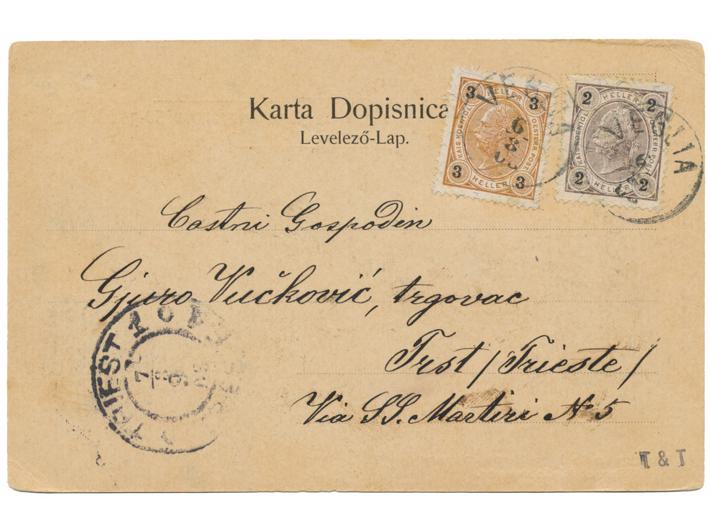 Karta Dopisnica
Levelező-Lap.
3 HELLER 3
KAIS. KOENIGL. OESTERR. POST
3 HELLER 3
2 HELLER 2
KAIS. KOENIGL. OESTERR. POST
2 HELLER 2
VEGLIA
VEGLIA
6
8
Častni Gospodin
Gjuro Vučković, trgovac
Trst /Trieste/
Via SS. Martiri No 5
TRIEST
7
8
T & T